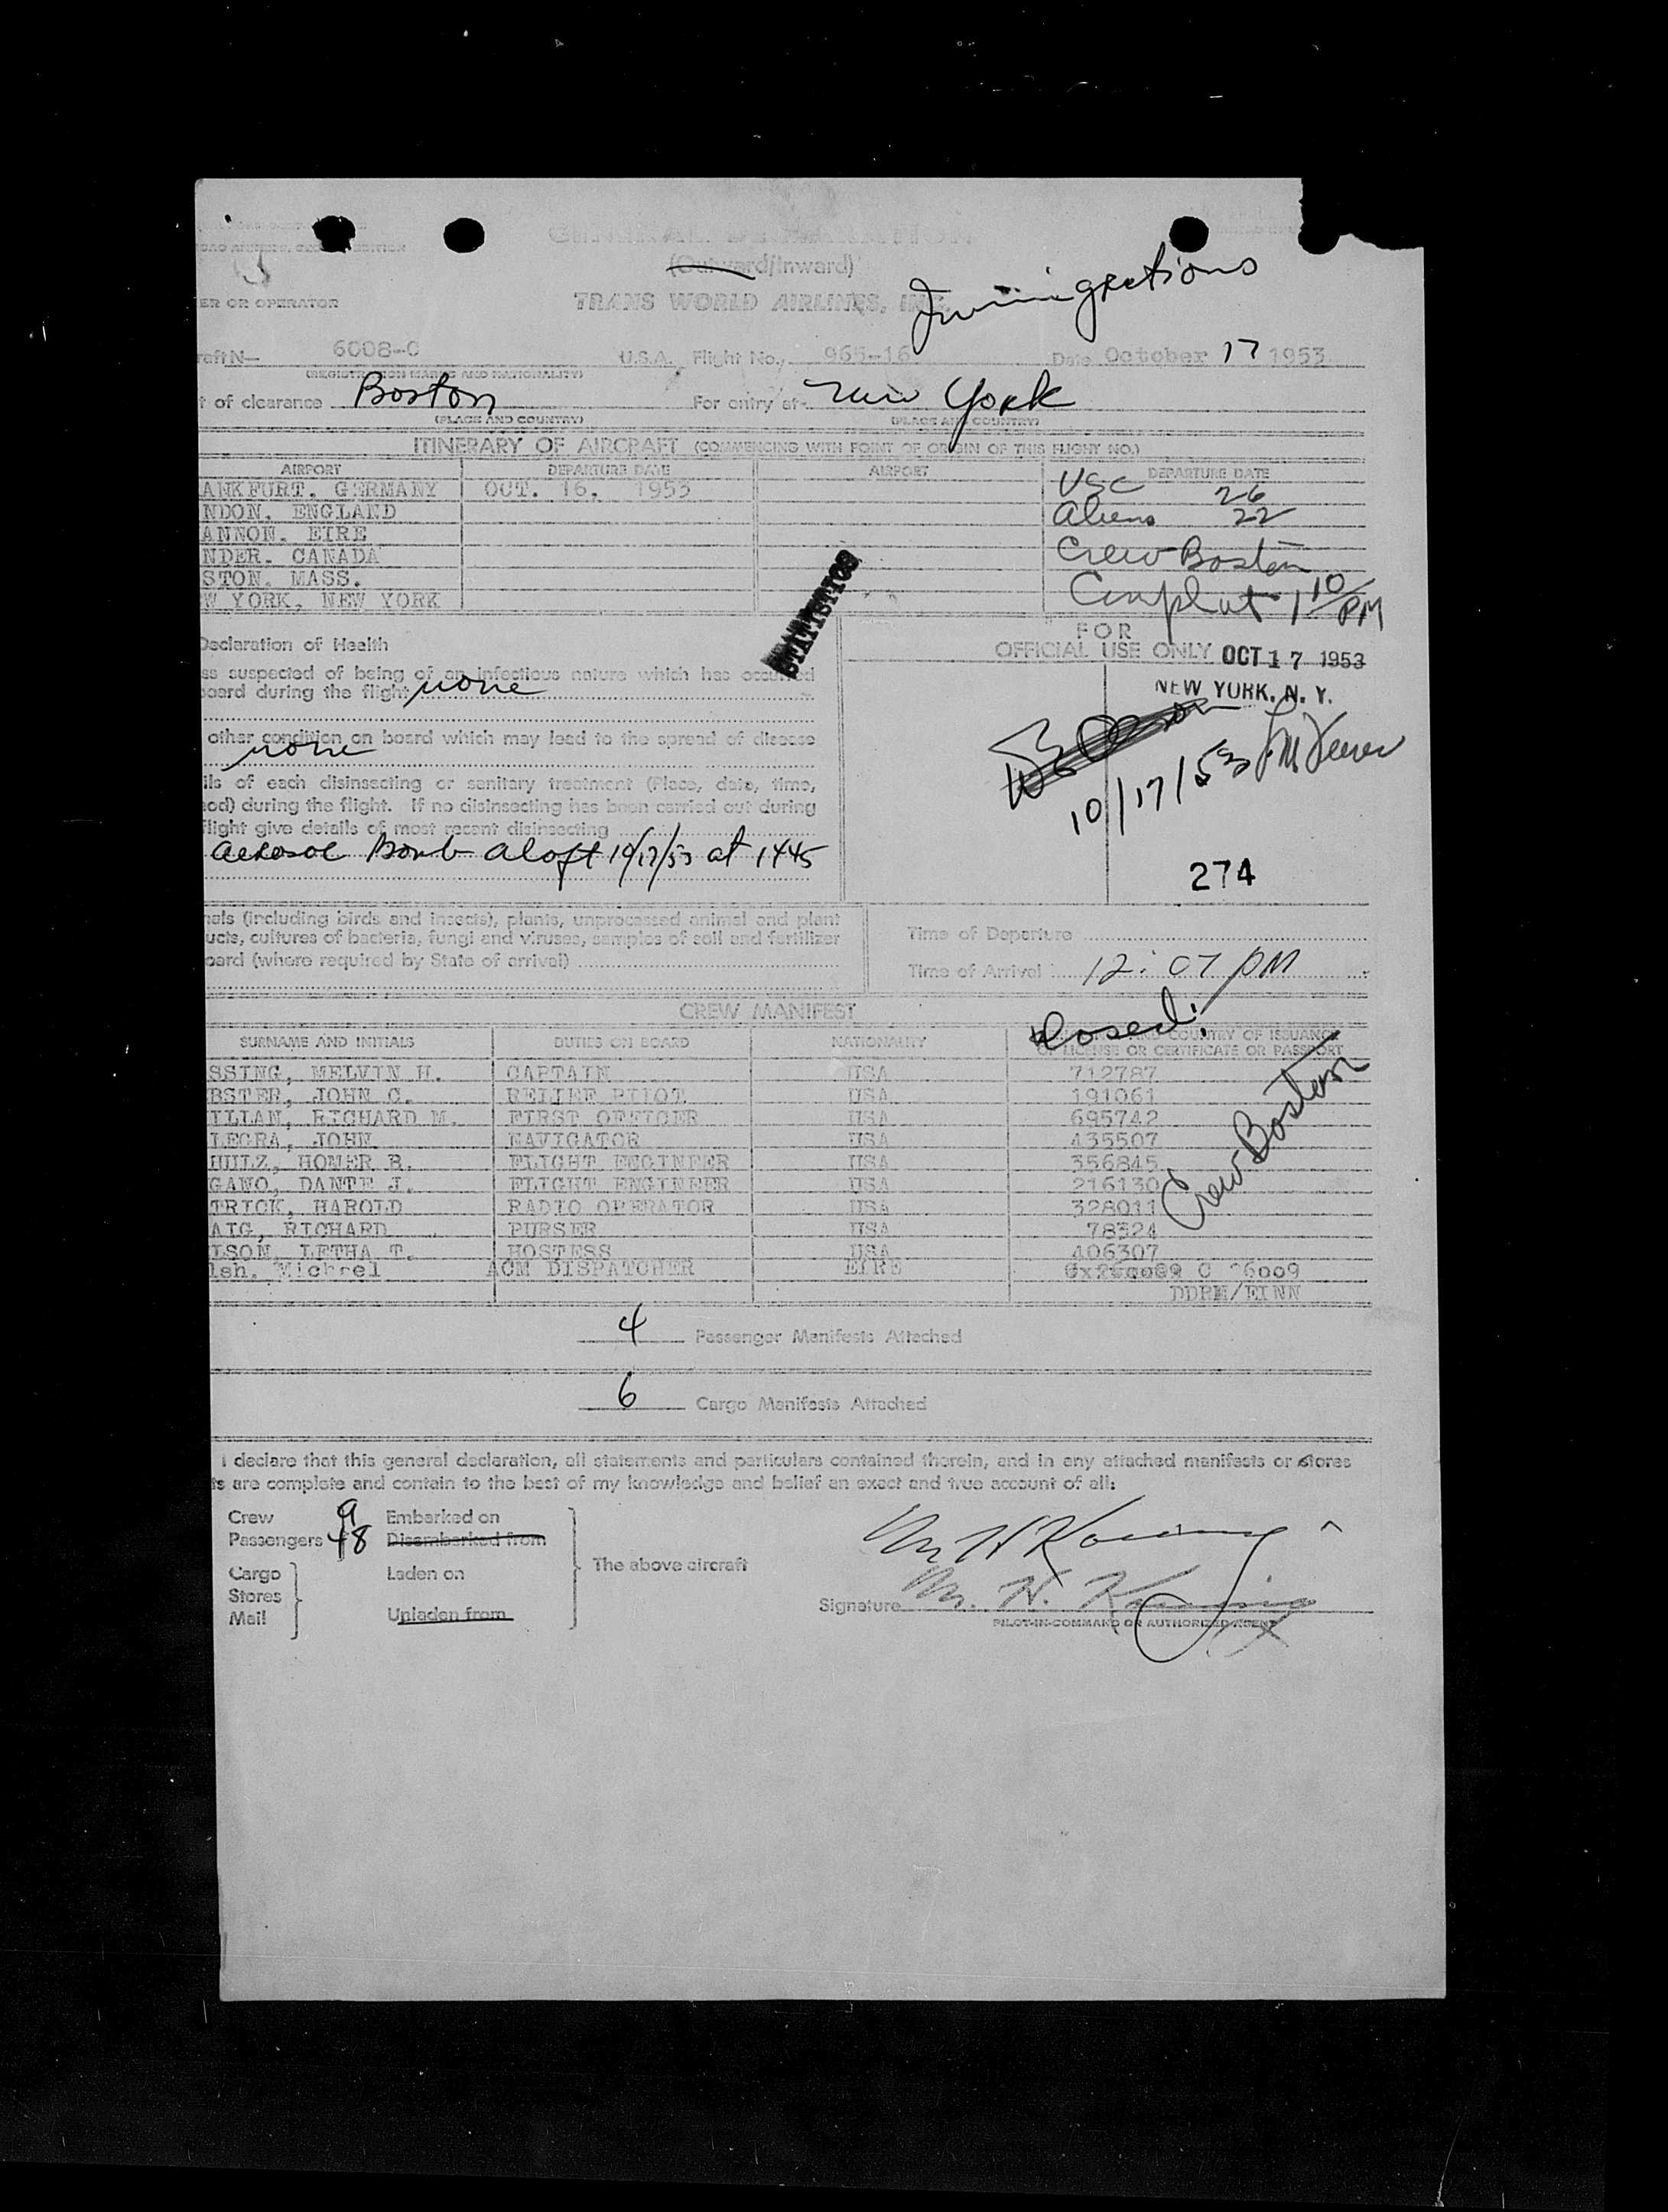 GENERAL DECLARATION
(Outward/Inward)
ER OR OPERATOR
TRANS WORLD AIRLINES, INC.
Immigrations
raft N— 6008-C U.S.A. Flight No. 965-16 Date October 17 1953
(REGISTRATION MARKS AND NATIONALITY)
t of clearance Boston For entry at New York
(PLACE AND COUNTRY) (PLACE AND COUNTRY)
ITINERARY OF AIRCRAFT (COMMENCING WITH POINT OF ORIGIN OF THIS FLIGHT NO.)
AIRPORT DEPARTURE DATE AIRPORT DEPARTURE DATE
ANKFURT, GERMANY OCT. 16, 1953 USC 26
NDON, ENGLAND Aliens 22
ANNON, EIRE
NDER, CANADA Crew Boston
STON, MASS.
W YORK, NEW YORK 1 10/PM
STATISTICS
Declaration of Health
FOR
OFFICIAL USE ONLY OCT 17 1953
ss suspected of being of an infectious nature which has occurred
oard during the flight none
NEW YORK, N. Y.
other condition on board which may lead to the spread of disease
none
10/17/53
ils of each disinsecting or sanitary treatment (Place, date, time,
od) during the flight. If no disinsecting has been carried out during
flight give details of most recent disinsecting
Aerosol Bomb aloft 10/17/53 at 1445
274
nals (including birds and insects), plants, unprocessed animal and plant
ucts, cultures of bacteria, fungi and viruses, samples of soil and fertilizer
oard (where required by State of arrival)
Time of Departure
Time of Arrival 12:07 PM
CREW MANIFEST
Closed!
SURNAME AND INITIALS DUTIES ON BOARD NATIONALITY AND COUNTRY OF ISSUANCE
OF LICENSE OR CERTIFICATE OR PASSPORT
SSING, MELVIN H. CAPTAIN USA 712787
BSTER, JOHN C. RELIEF PILOT USA 191061
ILLAN, RICHARD M. FIRST OFFICER USA 695742
LECRA, JOHN NAVIGATOR USA 435507
HULZ, HOMER B. FLIGHT ENGINEER USA 356845
GANO, DANTE J. FLIGHT ENGINEER USA 216130
TRICK, HAROLD RADIO OPERATOR USA 328011
AIG, RICHARD PURSER USA 78324
LSON, LETHA T. HOSTESS USA 406307
lsh, Michael ACM DISPATCHER EIRE C 26009
DDRM/EINN
Crew Boston
4 Passenger Manifests Attached
6 Cargo Manifests Attached
I declare that this general declaration, all statements and particulars contained therein, and in any attached manifests or stores
ts are complete and contain to the best of my knowledge and belief an exact and true account of all:
Crew 9 Embarked on
Passengers 48 Disembarked from
Cargo Laden on
Stores
Mail Unladen from
The above aircraft
Signature
PILOT-IN-COMMAND OR AUTHORIZED AGENT